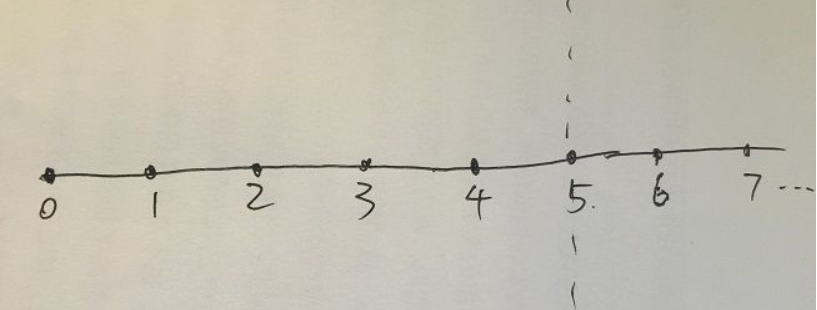 0 1 2 3 4 5. 6 7 ...